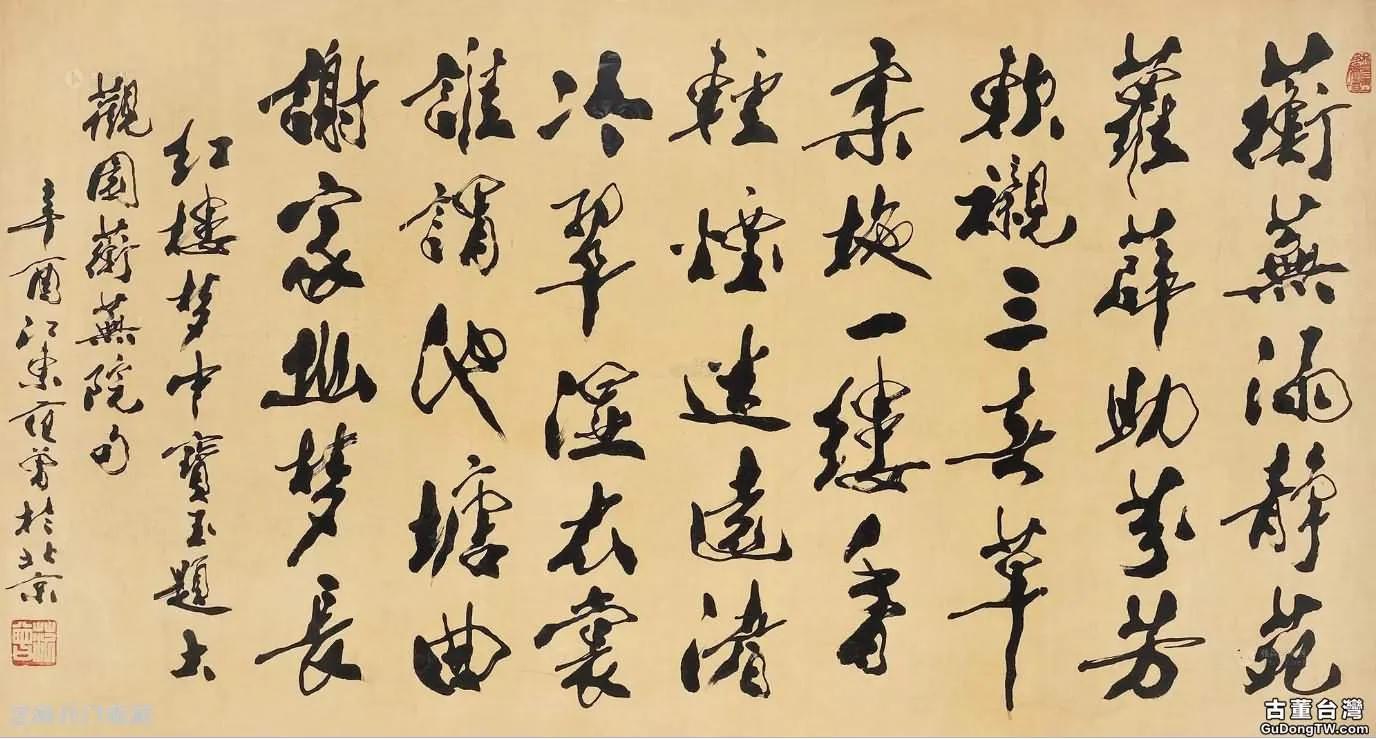 蘅蕪滿靜苑
蘿薜助芬芳
軟襯三春草
柔拖一縷香
輕煙迷遠渚
冷翠湿衣裳
誰謂池塘曲
謝家幽梦長
红樓梦中寶玉題大
觀園蘅蕪院句
辛酉江東范曾於北京
古董台灣
GuDongTW.com